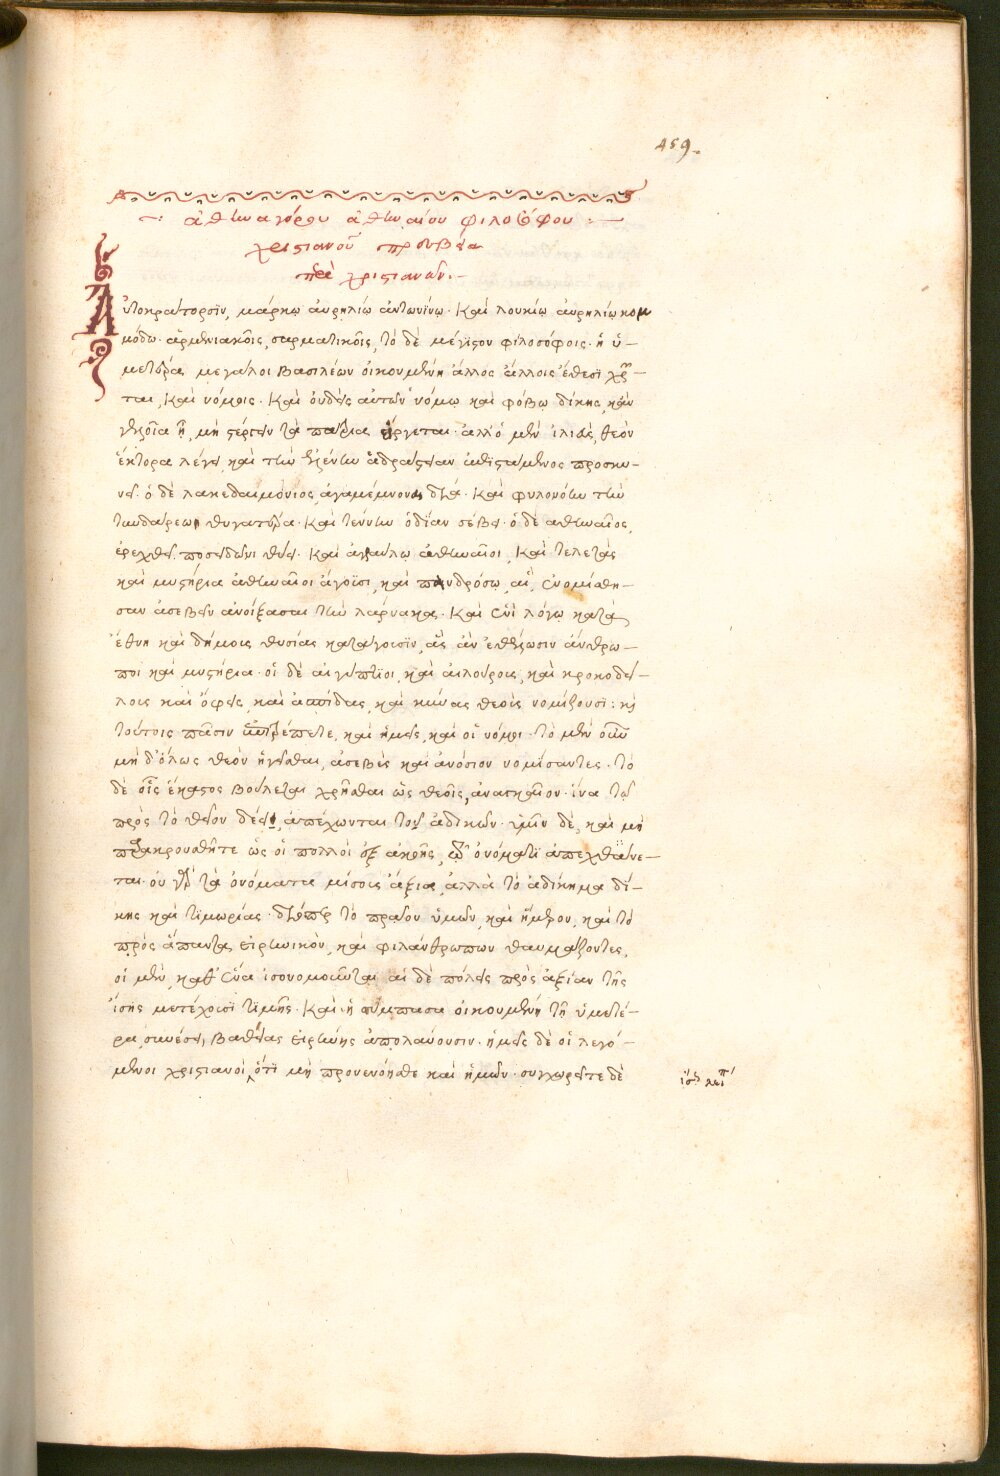 459.
ἀθηναγόρου ἀθηναίου φιλοσόφου
χριστιανοῦ πρεσβεία
περὶ χριστιανῶν.
Αὐτοκράτορσϊν, μάρκω ἀυρηλίω ἀντωνίνω· Καὶ λουκίω ἀυρηλίω κομ
μόδω· ἀρμενιακοῖς, σαρματικοῖς, τὸ δὲ μέγιστον φιλοσόφοις· ἡ ὑ-
μετέρα μεγάλοι βασιλέων οἰκουμένη ἄλλος ἄλλοις ἔθεσϊ χρῶν-
ται, Καὶ νόμοις· Καὶ ὀυδεὶς αὐτῶν νόμω καὶ φόβω δίκης, κἀν
γελοῖα ἦ, μὴ στέργειν τὰ πάτρια εἴργεται· ἀλλ ὁ μὲν ἰλιεὺς, θεὸν
ἕκτορα λέγει, καὶ τὴν ἑλένην ἀδράστειαν ἐπϊστάμενος προσκυ-
νεῖ· ὁ δὲ λακεδαιμόνιος, ἀγαμέμνονα δία· Καὶ φυλονόην τὴν
τυνδάρεω θυγατέρα· Καὶ τεννην ὁδίαν σέβει· ὁ δὲ ἀθηναῖος,
ἐρεχθεῖ ποσειδῶνι θύει· Καὶ ἀγραύλω ἀθηναῖοι, Καὶ τελετὰς
καὶ μυστήρια ἀθηναῖοι ἄγουσι, καὶ πανδρόσω, αἳ, ἐνομίσθη-
σαν ἀσεβεῖν ἀνοίξασαι τὴν λάρνακα· Καὶ ἑνὶ λόγω κατὰ
ἔθνη καὶ δήμους θυσίας κατάγουσϊν, ἃς ἀν ἐθέλωσιν ἄνθρω-
ποι καὶ μυστήρια· οἱ δὲ αἰγύπτϊοι, καὶ αἰλούρους, καὶ κροκοδεί-
λους καὶ ὄφεις, καὶ ἀσπίδας, καὶ κύνας θεοὺς νομίζουσϊ: καὶ
τούτοις πᾶσιν ἐπιτρέπετε, καὶ ἡμεῖς, καὶ οἱ νόμοι· τὸ μὲν οὖν
μὴ δ' ὅλως θεὸν ἡγεῖσθαι, ἀσεβὲς καὶ ἀνόσιον νομίσαντες· τὸ
δὲ οἷς ἕκαστος βούλεται χρῆσθαι ὡς θεοῖς, ἀναγκαῖον· ἵνα τῶ
πρὸς τὸ θεῖον δέει, ἀπέχωνται τοῦ ἀδικεῖν· ἡμῖν δὲ, καὶ μὴ
παρακρουσθῆτε ὡς οἱ πολλοὶ ἐξ ἀκοῆς, τῶ ὀνόματϊ ἀπεχθάνε-
ται· οὐ γὰρ τὰ ὀνόματα μίσους ἄξια, ἀλλὰ τὸ ἀδίκημα δί-
κης καὶ τϊμωρίας· διόπερ τὸ πρᾶον ὑμῶν, καὶ ἥμερον, καὶ τὸ
πρὸς ἅπαντα, εἰρηνικὸν, καὶ φιλάνθρωπον θαυμάζοντες,
οἱ μὲν, καθ' ἕνα ἰσονομοῦνται αἱ δὲ πόλεις πρὸς ἀξίαν τῆς
ἴσης μετέχουσϊ τϊμῆς· Καὶ ἡ σύμπασα οἰκουμένη τῆ ὑμετέ-
ρα συνέσει, βαθείας εἰρήνης ἀπολαύουσιν· ἡμεῖς δὲ οἱ λεγό-
μενοι χριστιανοὶ, ὅτϊ μὴ προνενόησθε καὶ ἡμῶν· συγχωρεῖτε δὲ